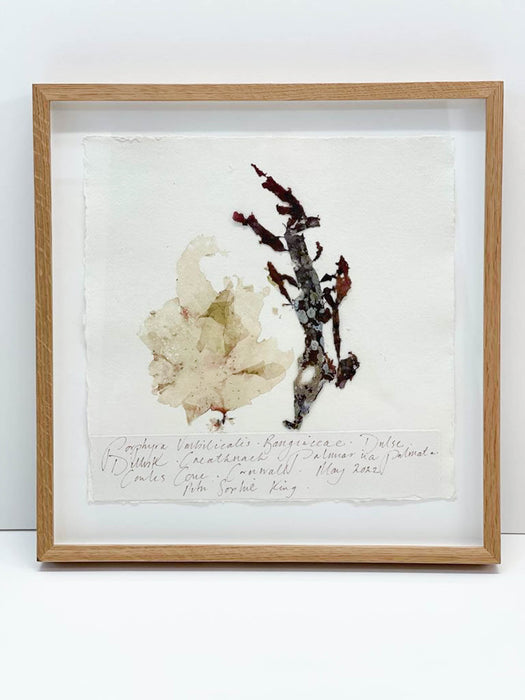 Porphyra Umbilicalis . Bangiaceae . Dulse
Dillisk . Creathnach . Palmaria Palmata
Cove . Cornwall . May 2022
Sophie King .